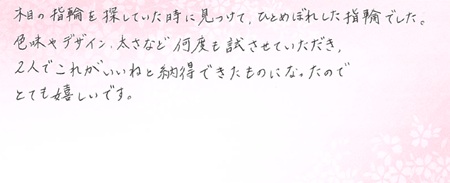 木目の指輪を探していた時に見つけて、ひとめぼれした指輪でした。
色味やデザイン、太さなど何度も試させていただき、
2人でこれがいいねと納得できたものになったので
とても嬉しいです。